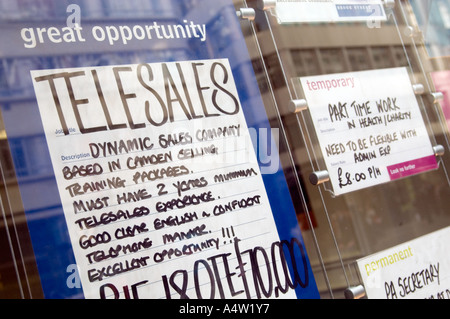 great opportunity
TELESALES
Job title
Description
DYNAMIC SALES COMPANY
BASED IN CAMDEN SELLING
TRAINING PACKAGES.
MUST HAVE 2 YEARS MINIMUM
TELESALES EXPERIENCE.
GOOD CLEAR ENGLISH &
TELEPHONE MANNER.
EXCELLENT OPPORTUNITY!!!
temporary
PART TIME WORK
IN HEALTH/CHARITY
Description
NEED TO BE FLEXIBLE WITH
ADMIN EXP
£8.00 P/H
Look no further
permanent
PA SECRETARY
A4W1Y7